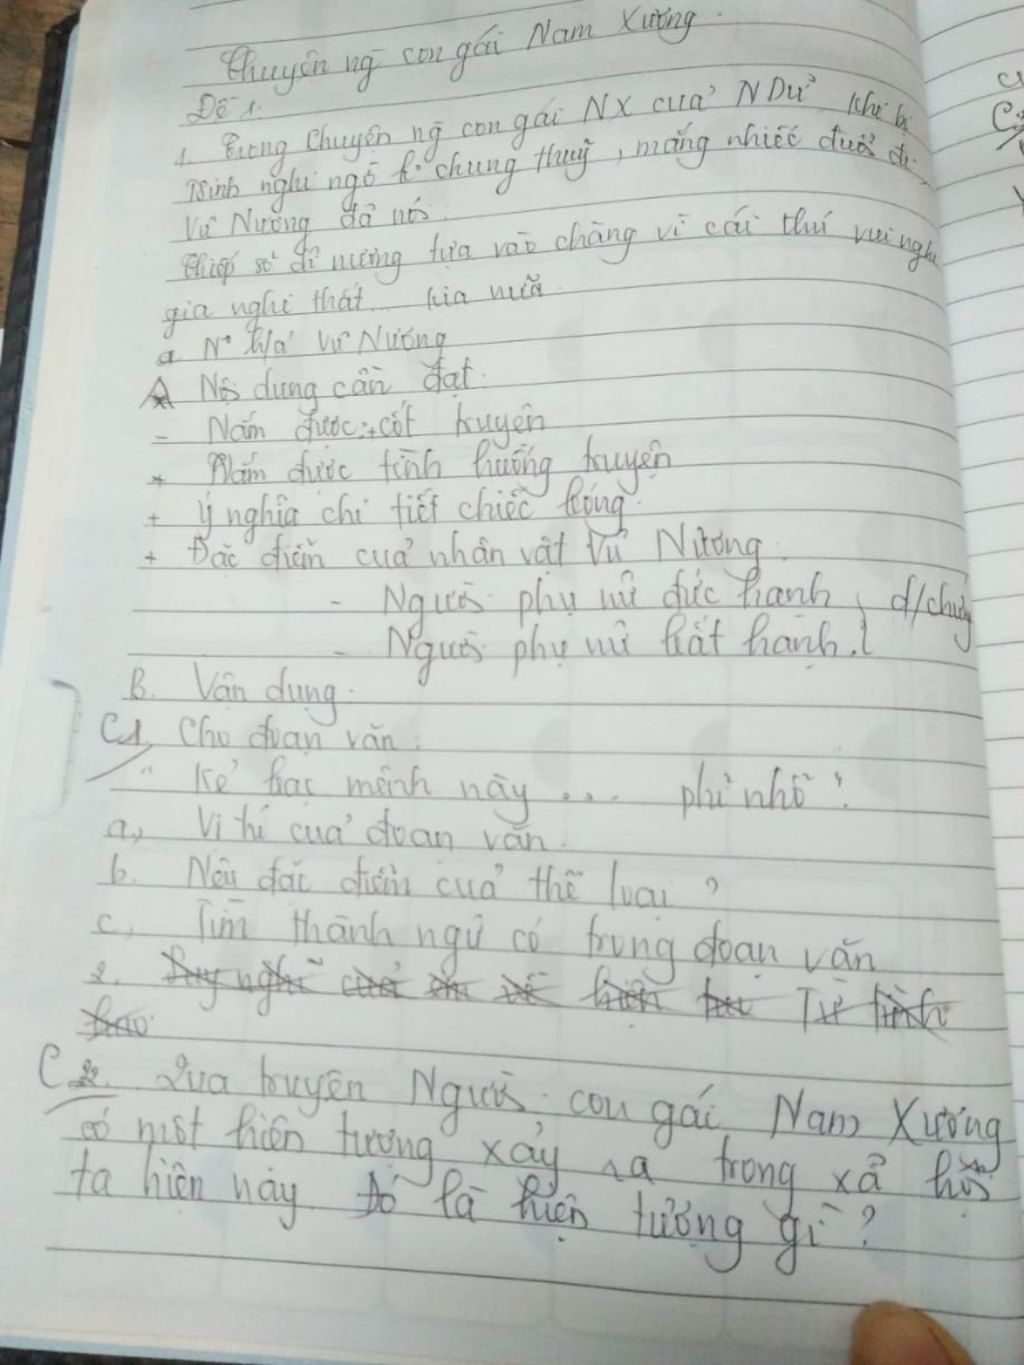 Chuyện ng̃ con gái Nam Xương.
Đề 1.
1. Trong Chuyện ng̃ con gái NX của N Dữ khi bị
nghi ngờ k. chung thuỷ, mắng nhiếc đuổi đi,
Vũ Nương đã nói:
Thiếp sở dĩ nương tựa vào chàng vì cái thú vui nghi
gia nghi thất kia nữa
a. Vũ Nương
A Nội dung cần đạt.
- Nắm được: + cốt truyện
+ Nắm được tình huống truyện
+ Ý nghĩa chi tiết chiếc bóng.
+ Đặc điểm của nhân vật Vũ Nương.
- Người phụ nữ đức hạnh,
- Người phụ nữ bất hạnh.
B. Vận dụng.
C1, Cho đoạn văn:
" Kẻ bạc mệnh này .... phỉ nhổ".
a, Vị trí của đoạn văn.
b. Nêu đặc điểm của thể loại?
c, Tìm thành ngữ có trong đoạn văn
2.
C2. Qua truyện Người con gái Nam Xương
có một hiện tượng xảy ra trong xã hội
ta hiện nay. Đó là hiện tượng gì?